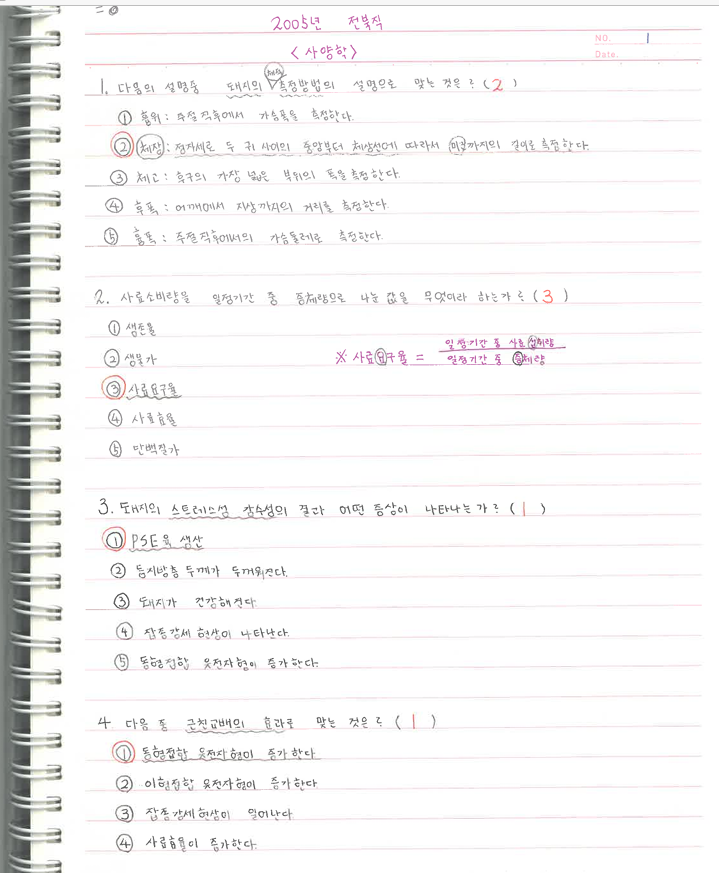 2005년 전북직
<사양학>
NO. 1
Date.
1. 다음의 설명중 돼지의 체척 측정방법의 설명으로 맞는 것은? (2)
① 흉위: 주절직후에서 가슴폭을 측정한다.
② 체장: 전자세로 두 귀 사이의 중앙부터 체상선에 따라서 미근까지의 길이로 측정한다.
③ 체고: 후구의 가장 넓은 부위의 폭을 측정한다.
④ 후폭: 어깨에서 지상까지의 거리를 측정한다.
⑤ 흉폭: 주절직후에서의 가슴둘레로 측정한다.
2. 사료소비량을 일정기간 중 증체량으로 나눈 값을 무엇이라 하는가? (3)
① 생존율
② 생물가
※ 사료요구율 = 일정기간 중 사료섭취량
일정기간 중 증체량
③ 사료요구율
④ 사료효율
⑤ 단백질가
3. 돼지의 스트레스성 감수성의 결과 어떤 증상이 나타나는가? (1)
① PSE육 생산
② 등지방층 두께가 두꺼워진다.
③ 돼지가 건강해진다
④ 잡종강세 현상이 나타난다.
⑤ 동형접합 유전자형이 증가한다.
4 다음 중 근친교배의 효과로 맞는 것은? (1)
① 동형접합 유전자형이 증가한다
② 이형접합 유전자형이 증가한다
③ 잡종강세현상이 일어난다
④ 사료효율이 증가한다.